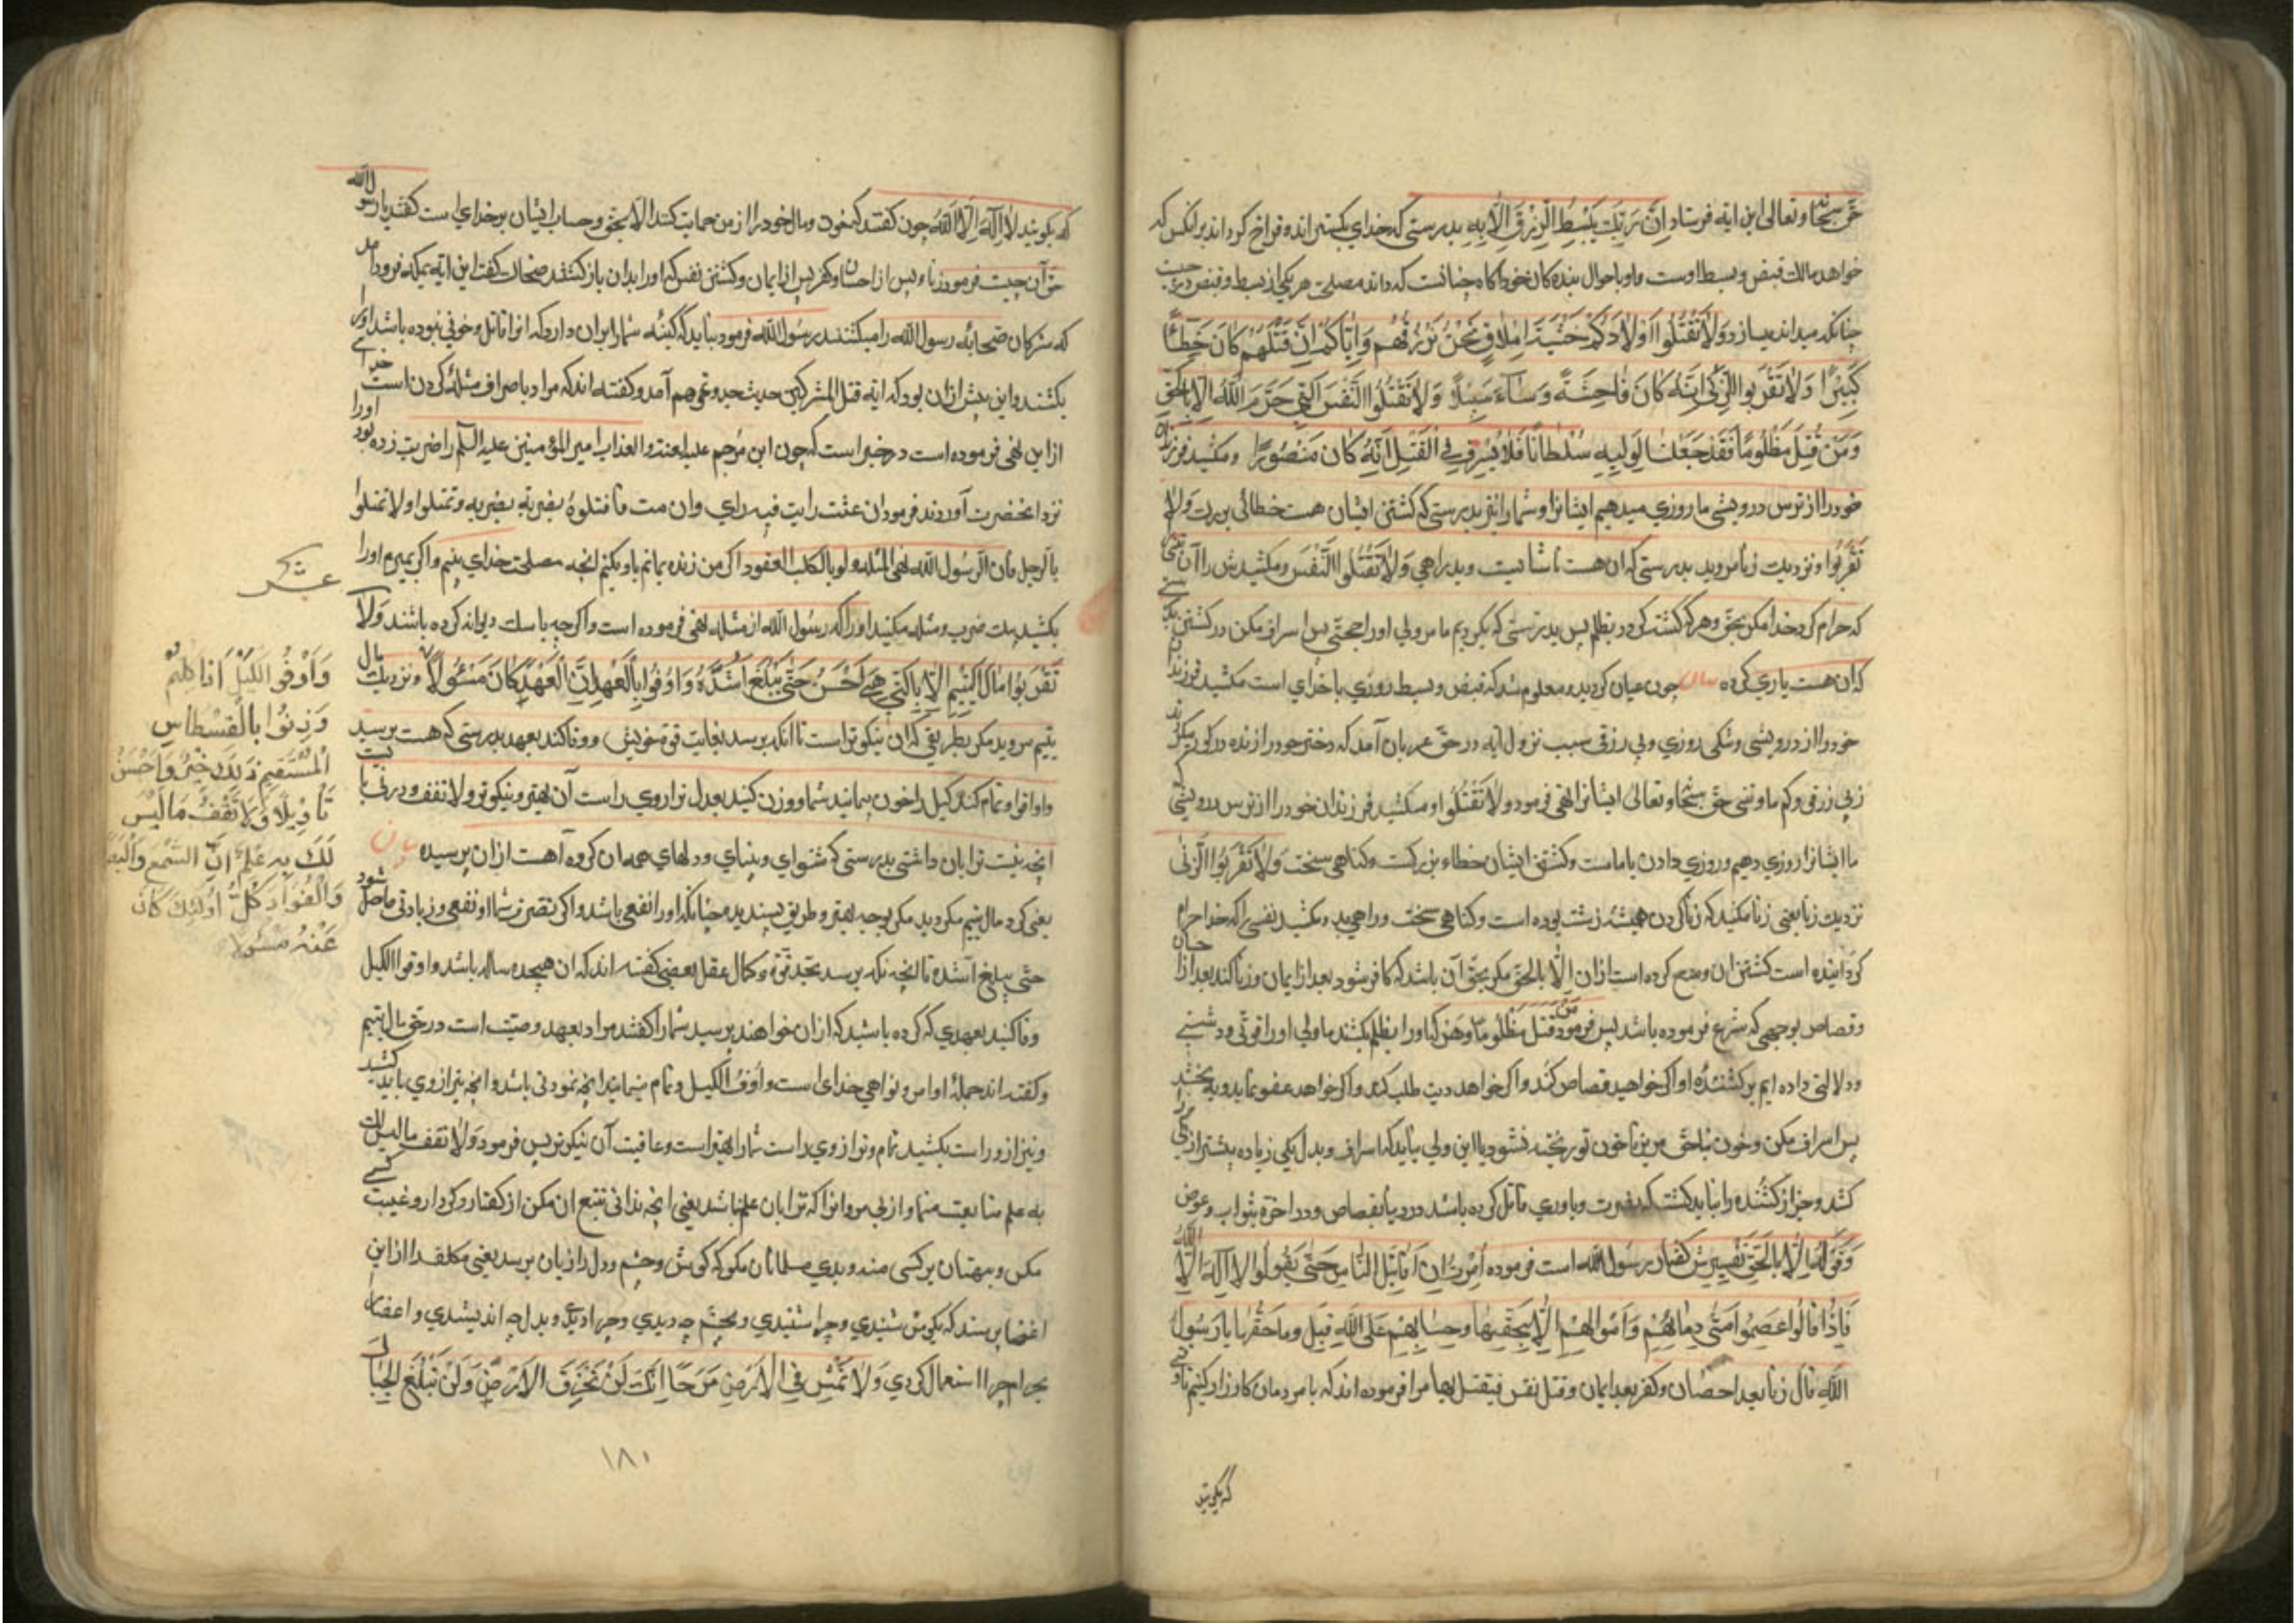 حق سبحانه و تعالی این ایه فرستاد اِنَّ رَبَّكَ يَبْسُطُ الرِّزْقَ الایه بدرستی که خدای بکستراند و فراخ کرداند بر انکس که
خواهد مالك قبض و بسط اوست و او باحوال بنده کان خود اکاه چنانست که داند مصلحت هر یکی از بسط و قبض در چیست
چنانکه میداند میسازد وَلَا تَقْتُلُوا اَوْلَادَكُمْ خَشْيَةَ اِمْلَاقٍ نَحْنُ نَرْزُقُهُمْ وَاِيَّاكُمْ اِنَّ قَتْلَهُمْ كَانَ خِطْأً
كَبِيْرًا وَلَا تَقْرَبُوا الزِّنٰى اِنَّهُ كَانَ فَاحِشَةً وَسَاءَ سَبِيْلًا وَلَا تَقْتُلُوا النَّفْسَ الَّتِي حَرَّمَ اللّٰهُ اِلَّا بِالْحَقِّ
وَمَنْ قُتِلَ مَظْلُومًا فَقَدْ جَعَلْنَا لِوَلِيِّهِ سُلْطَانًا فَلَا يُسْرِفْ فِي الْقَتْلِ اِنَّهُ كَانَ مَنْصُورًا و مکشید فرزندان
خود را از ترس درویشی ما روزی میدهیم ایشانرا و شما را نیز بدرستی که کشتن ایشان هست خطائی بزرك وَلَا
تَقْرَبُوا و نزدیك زنا مروید بدرستی که ان هست ناشایست و بد راهی وَلَا تَقْتُلُوا النَّفْسَ و مکشید
که حرام کرد خدا مکر بحق و هر که کشت کردد بظلم پس بدرستی که بکردیم ما مر ولی او را حجتی پس اسراف مکن در کشتن
که ان هست یاری کرده بیان چون عیان کردید و معلوم شد که قبض و بسط روزی با خدای است مکشید فرزندان
خود را از درویشی و تنکی روزی و بی رزقی سبب نزول ایه در حق عربان آمد که دختر خود را زنده در کور میکردند
ز بی رزقی و کم ماوتنی حق سبحانه و تعالی ایشانرا نهی فرمود وَلَا تَقْتُلُوا و مکشید فرزندان خود را از ترس درویشی
ما ایشانرا روزی دهیم و روزی دادن با ماست و کشتن ایشان خطاء بزرکست و کناهی سخت وَلَا تَقْرَبُوا الزِّنٰی
نزدیك زنا یعنی زنا مکنید که زنا کردن همیشه زشت بوده است و کناهی سخت و راهی بد و مکشید نفسی را که خدا حرام
کردانیده است کشتن ان و منع کرده است ازان اِلَّا بالحق مکر بحق آن باشد که کافر شود بعد از ایمان و زنا کند بعد از احصان
و قصاص بوجهی که شرع فرموده باشد پس فرمود وَمَنْ قُتِلَ مَظْلُومًا و هر که او را بظلم بکشند ما ولی او را قوتی و دستی
و دلالتی داده ایم بر کشنده او اکر خواهید قصاص کند و اکر خواهد دیت طلب کند و اکر خواهد عفو نماید و به بخشد
پس اسراف مکن و خون ناحق مریز تا خون تو ریخته نشود یا این ولی نباید که اسراف و بدل یکی زیاده بیشتر از یکی
کشد و جز از کشنده را نباید کشت که نصرت و یاوری قاتل کرده باشد در دنیا بقصاص و در اخرة بثواب و عوض
وَقَوْلُهُ اِلَّا بِالْحَقِّ تفسیرش کفتار رسول الله است فرموده اُمِرْتُ اَنْ اُقَاتِلَ النَّاسَ حَتّٰی يَقُولُوا لَا اِلٰهَ اِلَّا اللّٰهُ
فَاِذَا قَالُوا عَصَمُوا مِنِّي دِمَائَهُمْ وَاَمْوَالَهُمْ اِلَّا بِحَقِّهَا وَحِسَابُهُمْ عَلَى اللّٰهِ قِيلَ وَمَا حَقُّهَا يَا رَسُولَ
اللّٰهِ قال زنا بعد احصان و کفر بعد ایمان و قتل نفس فیقتل بها مرا فرموده اند که با مردمان کارزار کنیم تا
که بکویند
که بکویند لَا اِلٰهَ اِلَّا اللّٰهُ چون کفتند که خون و مال خود را از من حمایت کنند الا بحق و حساب ایشان بر خدای است کفتند یا رسول الله
حق آن چیست فرمود زنا پس از احصان و کفر پس از ایمان و کشتن نفس که او را بدان باز کشند ضحاك کفت این ایه بمکه فرود آمد
که مشرکان صحابه رسول الله را میکشتند رسول الله فرمود نباید که کینه شما را بران دارد که انرا قاتل و خونی نبوده باشد او را
بکشند و این پیش ازان بود که ایه قتل المشرکین آمد و کفته اند که مراد باسراف مثله کردن است خدای
ازاین نهی فرموده است در خبر است که چون ابن ملجم علیه اللعنة و العذاب امیر المؤمنین علیه السلم را ضربت زده بود او را
نزد انحضرت آوردند فرمود ان عشت رایت فیه رای و ان مت فاقتلوه بضربة بضربة و تقتلوا و لا تمثلوا
بالرجل فان الرسول الله نهی المثله و لو بالکلب العقور اکر من زنده بمانم با او بکنم انچه مصلحت خدای بینم و اکر بمیرم او را
بکشید بیك ضرب و مثله مکنید او را که رسول الله از مثله نهی فرموده است و اکر چه با سك دیوانه کرده باشند وَلَا
تَقْرَبُوا مَالَ الْيَتِيْمِ اِلَّا بِالَّتِي هِيَ اَحْسَنُ حَتّٰى يَبْلُغَ اَشُدَّهُ وَاَوْفُوا بِالْعَهْدِ اِنَّ الْعَهْدَ كَانَ مَسْئُولًا و نزدیك مال
یتیم مروید مکر بطریقی که ان نیکوتر است تا انکه برسد بغایت قوة خویش و وفا کند بعهد بدرستی که هست برسید
و اوفوا و تمام کنید کیل را چون بپمانید شما و وزن کنید بعدل ترازوی راست آن بهتر و نیکوتر و لا تقف و در پی
انچه نیست ترا بان داشتی بدرستی که شنوای و بینای و دلهای همه ان کروه آهست ازان پرسیده بیان
یعنی کرد مال یتیم مکردید مکر بوجه بهتر و طریق پسندیده چنانکه او را نفعی باشد و اکر تصرف شما او نفعی و زیادتی حاصل شود
حتّی یبلغ اشده تا انچه که برسد بحد قوة و کمال عقل بعضی کفته اند که ان هیجده ساله باشد و اوفوا الکیل
وفا کنید بعهدی که کرده باشید که ازان خواهند پرسید شما را کفتند مراد بعهد وصیت است در حق مال یتیم
و کفته اند جمله اوامر و نواهی خدای است و اَوْفُ الکیل و تمام بپمایید انچه نمودنی باشد و انچه بترازوی باید کشید
و بترازو راست بکشید تمام و ترازوی راست شما را بهتر است و عاقبت آن نیکوتر پس فرمود وَلَا تقف ما لیس لك
به علم متابعت منما و از پی مرو انرا که ترا بان علم نباشد یعنی انچه ندانی تتبع ان مکن از کفتار و کردار و غیبت کسی
مکن و بهتان بر کسی منه و بدی مسلمانان مکو که کوش و چشم و دل را زیان برسد یعنی مکلف را از این
اعضا پرسند که بکوش شنیدی و چرا شنیدی و بچشم چه دیدی و چرا دیدی و بدل چه اندیشدی و اعضا را
چرا استعمال کردی وَلَا تَمْشِ فِي الْاَرْضِ مَرَحًا اِنَّكَ لَنْ تَخْرِقَ الْاَرْضَ وَلَنْ تَبْلُغَ الْجِبَالَ
عشر
وَاَوْفُوا الْكَيْلَ اِذَا كِلْتُمْ
وَزِنُوا بِالْقِسْطَاسِ
الْمُسْتَقِيْمِ ذٰلِكَ خَيْرٌ وَاَحْسَنُ
تَاْوِيْلًا وَلَا تَقْفُ مَا لَيْسَ
لَكَ بِهِ عِلْمٌ اِنَّ السَّمْعَ وَالْبَصَرَ
وَالْفُؤَادَ كُلُّ اُولٰئِكَ كَانَ
عَنْهُ مَسْئُولًا
١٨٠